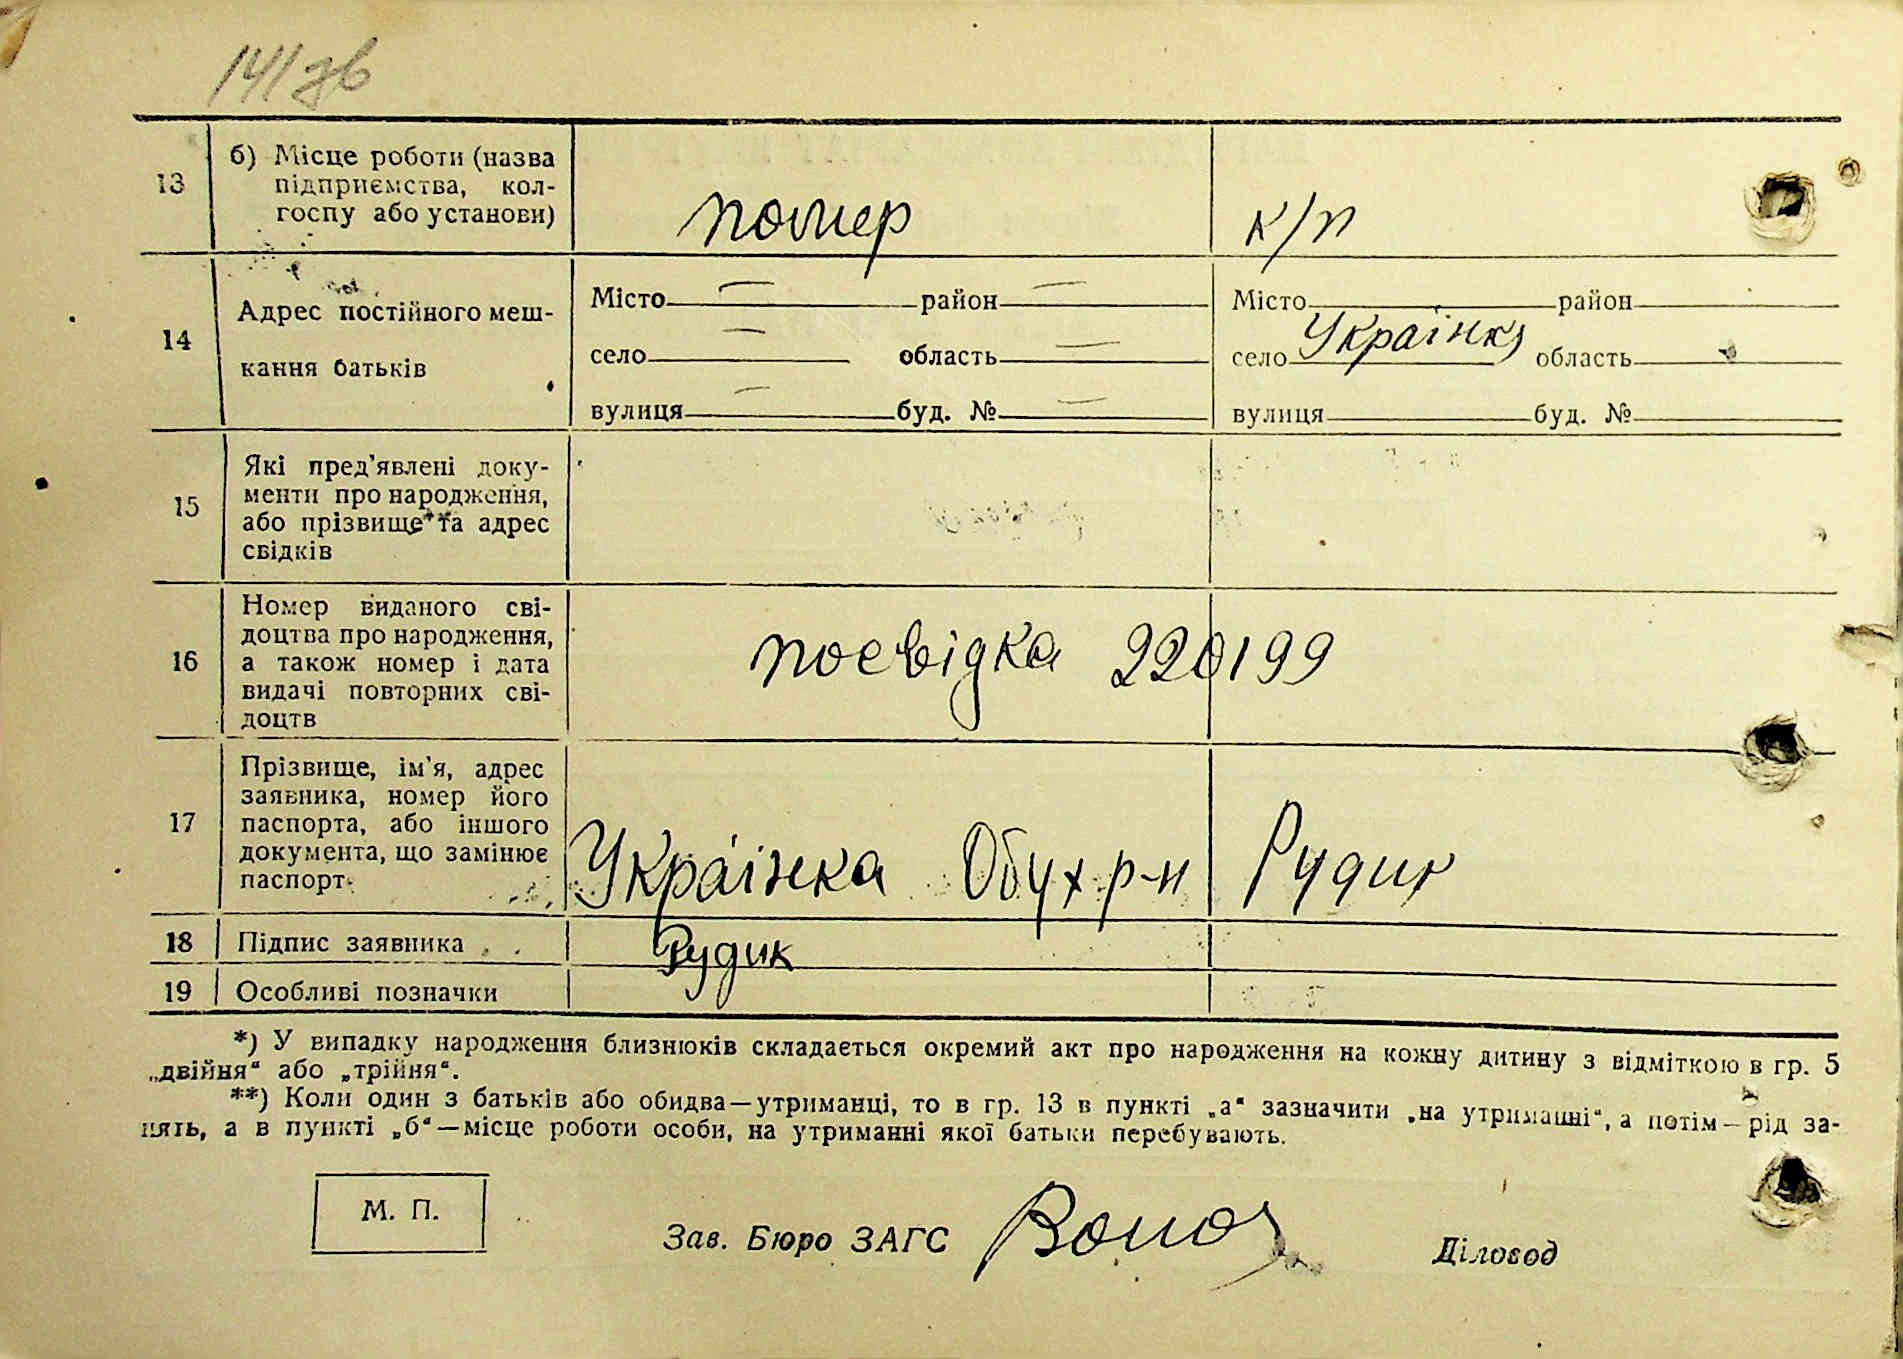 141 зв
13
б) Місце роботи (назва
підприємства, кол-
госпу або установи)
помер
к/п
14
Адрес постійного меш-
кання батьків
Місто — район —
село — область —
вулиця — буд. № —
Місто район
село Українка область
вулиця буд. №
15
Які пред'явлені доку-
менти про народження,
або прізвище та адрес
свідків
16
Номер виданого сві-
доцтва про народження,
а також номер і дата
видачі повторних сві-
доцтв
посвідка 220199
17
Прізвище, ім'я, адрес
заявника, номер його
паспорта, або іншого
документа, що замінює
паспорт
Українка Обух р-н Рудик
18 Підпис заявника Рудик
19 Особливі позначки
*) У випадку народження близнюків складається окремий акт про народження на кожну дитину з відміткою в гр. 5
„двійня“ або „трійня“.
**) Коли один з батьків або обидва—утриманці, то в гр. 13 в пункті „а“ зазначити „на утриманні“, а потім—рід за-
нять, а в пункті „б“—місце роботи особи, на утриманні якої батьки перебувають.
М. П.
Зав. Бюро ЗАГС
Діловод